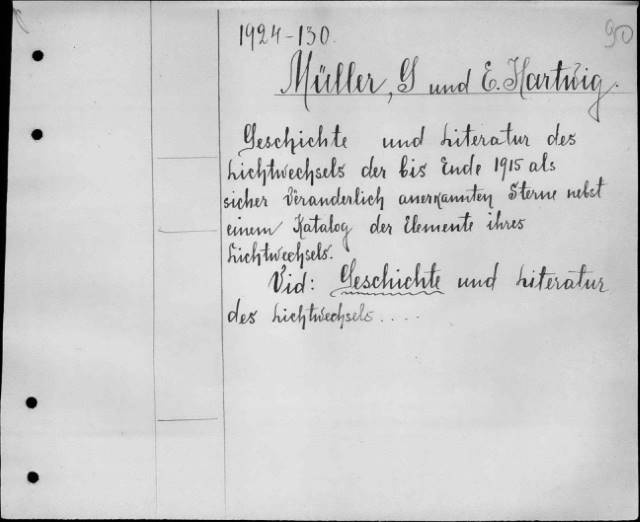 1924-130.
90
Müller, G und E. Hartwig.
Geschichte und Literatur des
Lichtwechsels der bis Ende 1915 als
sicher Veranderlich anerkannten Sterne nebst
einem Katalog der Elemente ihres
Lichtwechsels.
Vid: Geschichte und Literatur
des Lichtwechsels....